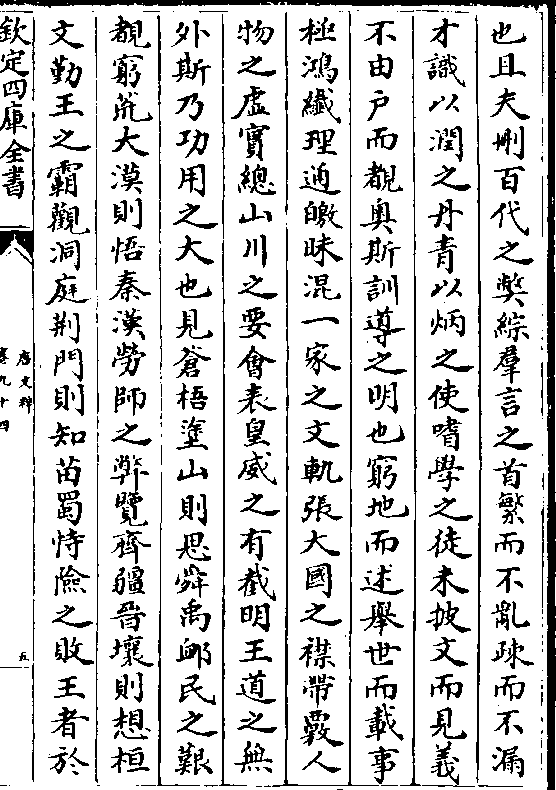 也且夫刪百代之弊綜羣言之首繁而不亂疎而不漏
才識以潤之丹青以炳之使嗜學之徒未披文而見義
不由戶而覩奧斯訓導之明也窮地而述舉世而載事
極鴻纖理通皦昧混一家之文軌張大國之襟帶覈人
物之虛實總山川之要會表皇威之有截明王道之無
外斯乃功用之大也見蒼梧塗山則思舜禹卹民之艱
覩窮荒大漠則悟秦漢勞師之弊覽齊疆晉壤則想桓
文勤王之霸觀洞庭荆門則知苗蜀恃險之敗王者於
欽定四庫全書
唐文粹
卷九十四
五